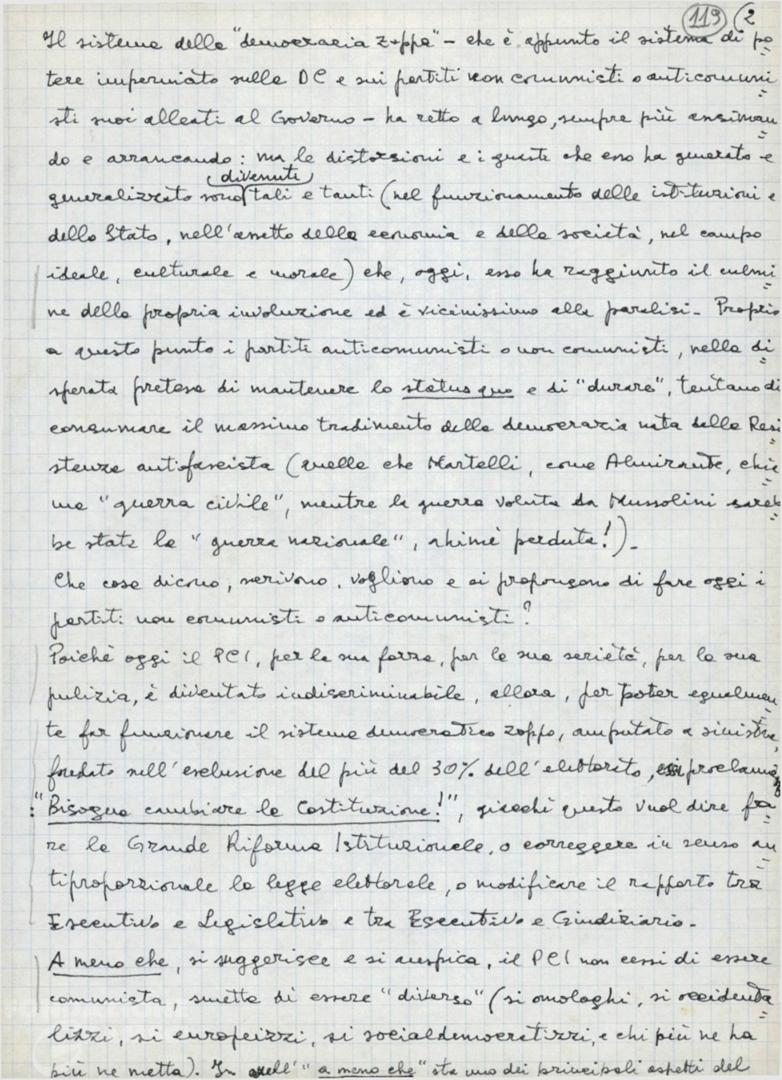 119 (2
Il sistema della "democrazia zoppa" – che è appunto il sistema di po
tere imperniato sulla DC e sui partiti non comunisti o anticomuni
sti suoi alleati al Governo – ha retto a lungo, sempre più ansiman
do e arrancando: ma le distorsioni e i guasti che esso ha generato e
divenuti
generalizzato sono tali e tanti (nel funzionamento delle istituzioni e
dello Stato, nell'assetto della economia e della società, nel campo
ideale, culturale e morale) che, oggi, esso ha raggiunto il culmi
ne della propria involuzione ed è vicinissimo alla paralisi. Proprio
a questo punto i partiti anticomunisti o non comunisti, nella di
sperata pretesa di mantenere lo status quo e di "durare", tentano di
consumare il massimo tradimento della democrazia nata dalla Resi
stenza antifascista (quella che Martelli, come Almirante, chia
ma "guerra civile", mentre la guerra voluta da Mussolini sareb
be stata la "guerra nazionale", ahimè perduta!).
Che cosa dicono, scrivono, vogliono e si propongono di fare oggi i
partiti non comunisti o anticomunisti?
Poiché oggi il PCI, per la sua forza, per la sua serietà, per la sua
pulizia, è diventato indiscriminabile, allora, per poter egualmen
te far funzionare il sistema democratico zoppo, amputato a sinistra,
fondato sull'esclusione del più del 30% dell'elettorato, si proclama
: "Bisogna cambiare la Costituzione!", giacché questo vuol dire fa
re la Grande Riforma Istituzionale, o correggere in senso an
tiproporzionale la legge elettorale, o modificare il rapporto tra
Esecutivo e Legislativo e tra Esecutivo e Giudiziario.
A meno che, si suggerisce e si auspica, il PCI non cessi di essere
comunista, smetta di essere "diverso" (si omologhi, si occidenta
lizzi, si europeizzi, si socialdemocratizzi, e chi più ne ha
più ne metta). In quell' "a meno che" sta uno dei principali aspetti del